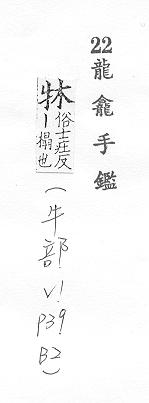 22龍龕手鑑
牀俗士庄反
丨榻也
(牛部 V1 P39 B2)